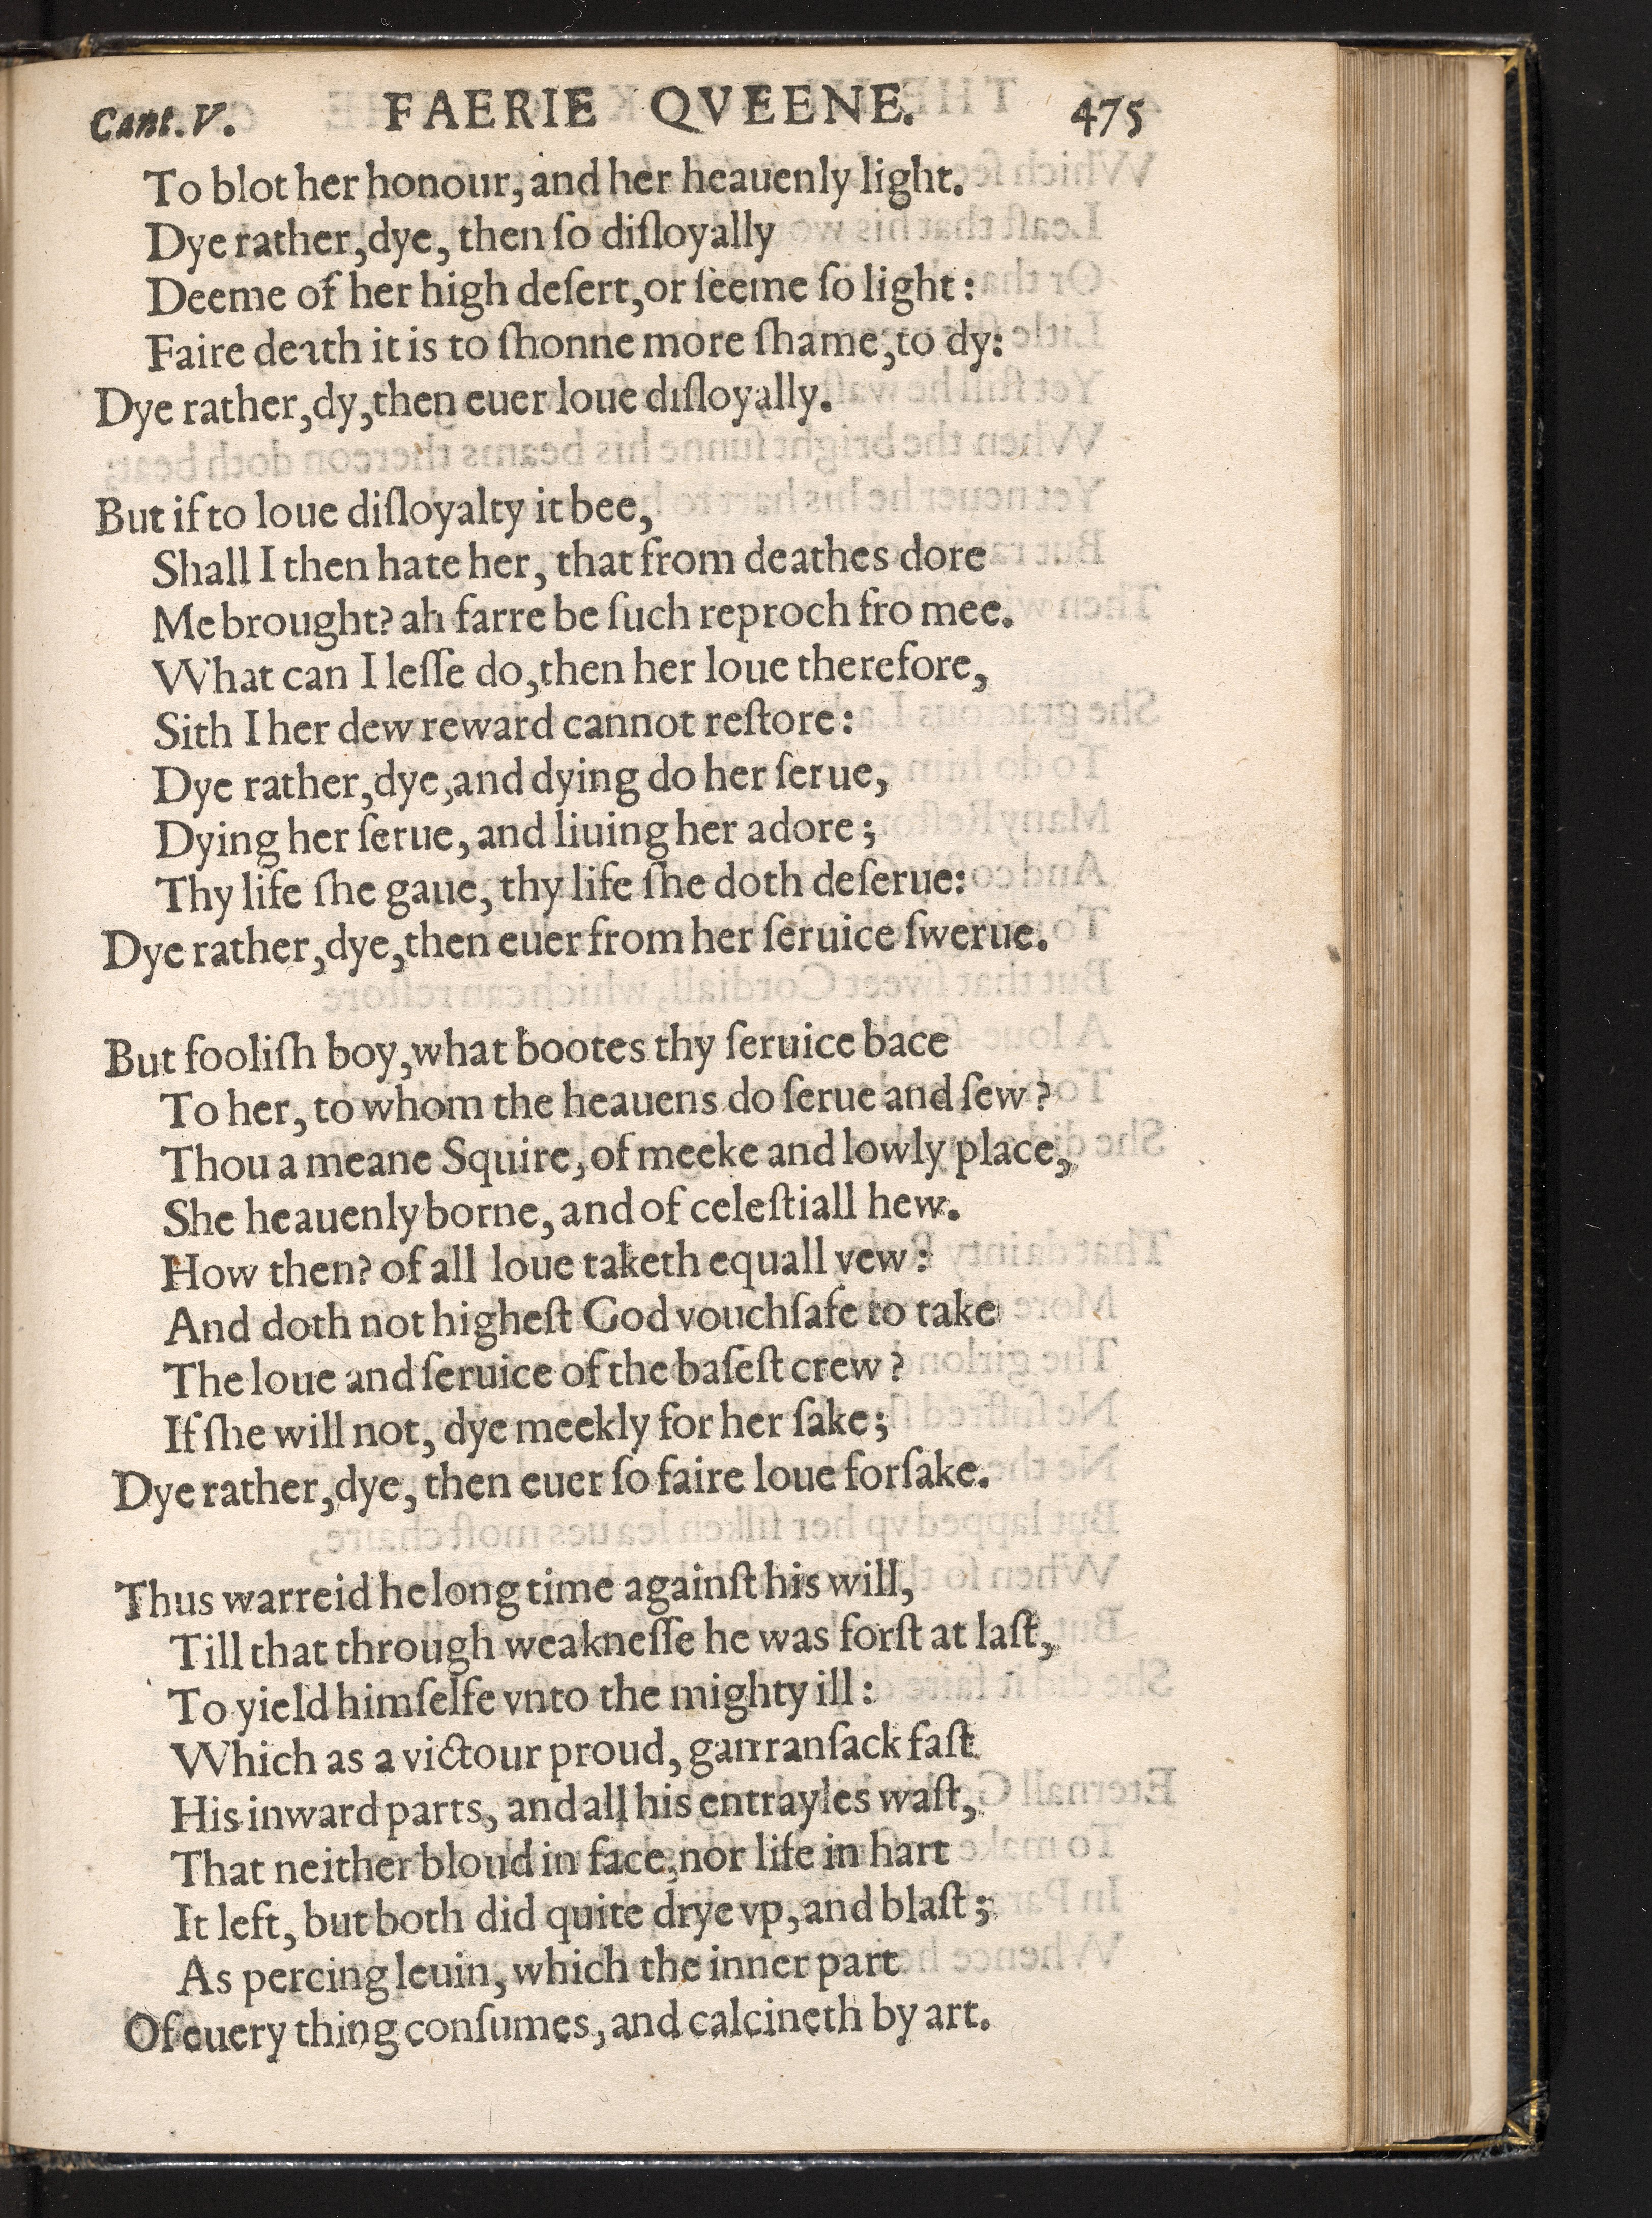 Cant. V. FAERIE QVEENE. 475
To blot her honour, and her heauenly light.
Dye rather, dye, then ſo diſloyally
Deeme of her high deſert, or ſeeme ſo light:
Faire death it is to ſhonne more ſhame, to dy:
Dye rather, dy, then euer loue diſloyally.
But if to loue diſloyalty it bee,
Shall I then hate her, that from deathes dore
Me brought? ah farre be ſuch reproch fro mee.
What can I leſſe do, then her loue therefore,
Sith I her dew reward cannot reſtore:
Dye rather, dye, and dying do her ſerue,
Dying her ſerue, and liuing her adore;
Thy life ſhe gaue, thy life ſhe doth deſerue:
Dye rather, dye, then euer from her ſeruice ſwerue.
But fooliſh boy, what bootes thy ſeruice bace
To her, to whom the heauens do ſerue and ſew?
Thou a meane Squire, of meeke and lowly place,
She heauenly borne, and of celeſtiall hew.
How then? of all loue taketh equall vew:
And doth not higheſt God vouchſafe to take
The loue and ſeruice of the baſeſt crew?
If ſhe will not, dye meekly for her ſake;
Dye rather, dye, then euer ſo faire loue forſake.
Thus warreid he long time againſt his will,
Till that through weakneſſe he was forſt at laſt,
To yield himſelfe vnto the mighty ill:
Which as a victour proud, gan ranſack faſt
His inward parts, and all his entrayles waſt,
That neither bloud in face, nor life in hart
It left, but both did quite drye vp, and blaſt;
As percing leuin, which the inner part
Of euery thing conſumes, and calcineth by art.